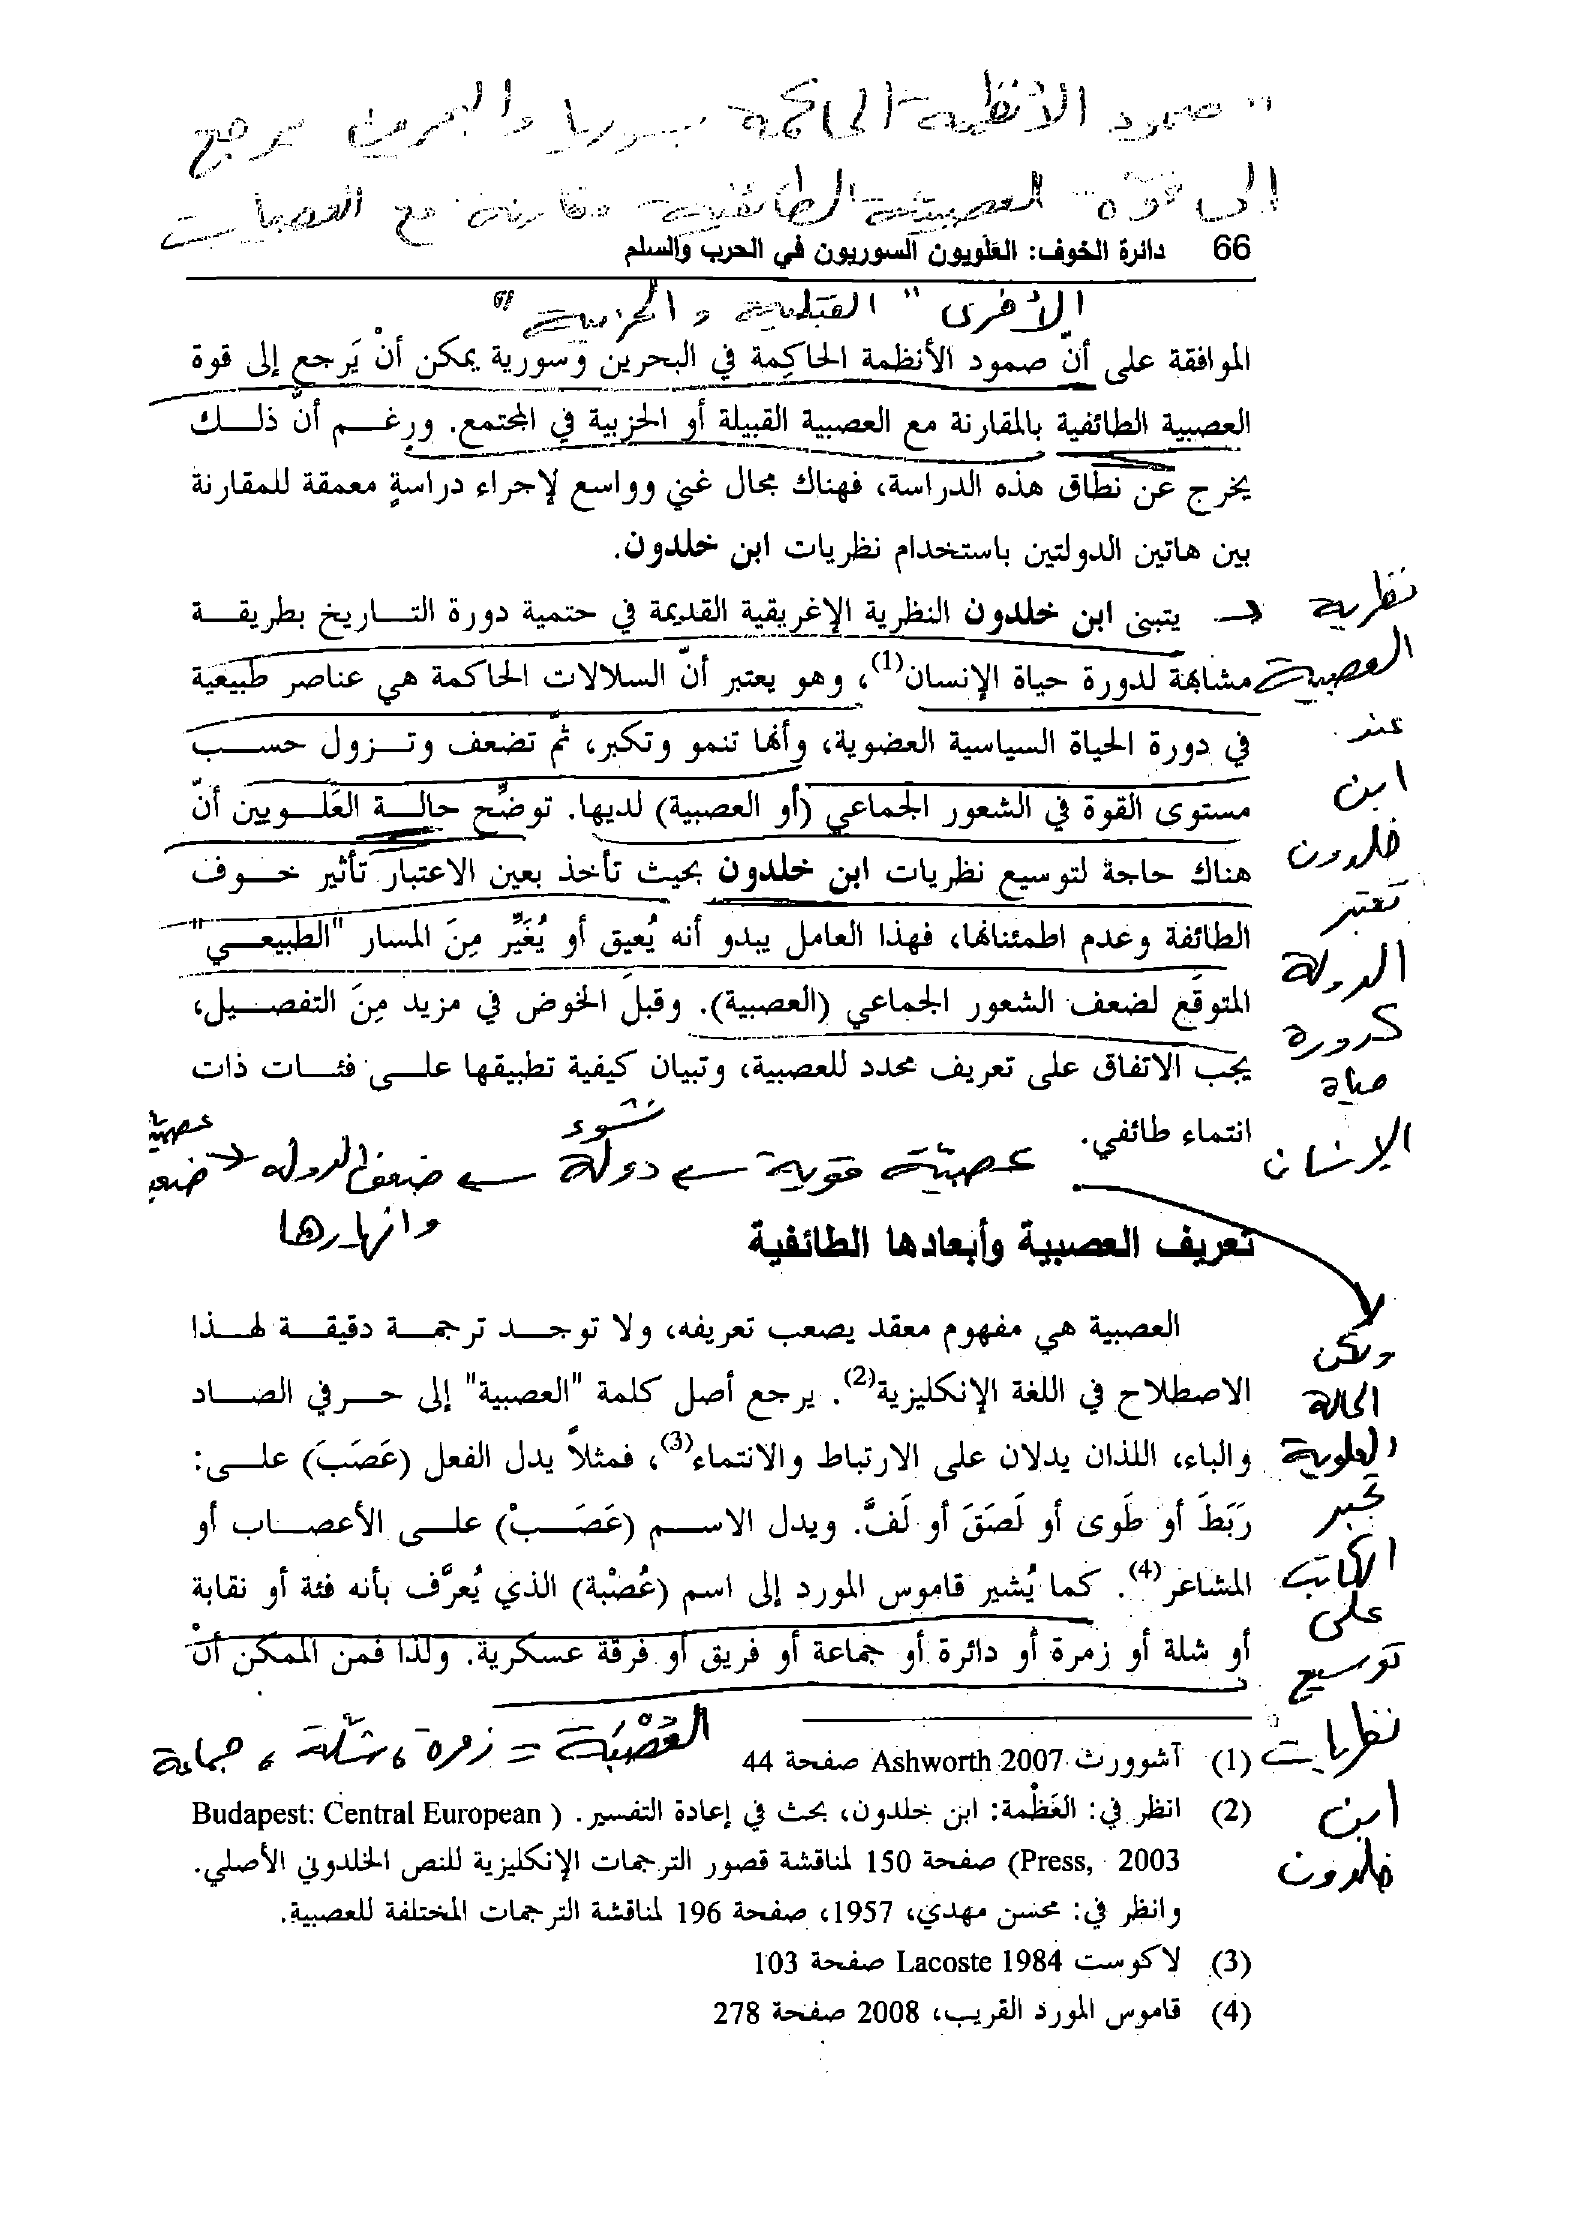 " صمود الأنظمة الحاكمة بسوريا والبحرين يرجع
إلى قوة العصبية الطائفية مقارنة مع العصبيات
66 دائرة الخوف: العَلويون السوريون في الحرب والسلم
الأخرى " القبلية والحزبية "
الموافقة على أنّ صمود الأنظمة الحاكِمة في البحرين وسورية يمكن أنْ يَرجع إلى قوة
العصبية الطائفية بالمقارنة مع العصبية القبيلة أو الحزبية في المجتمع. ورغم أنّ ذلك
يخرج عن نطاق هذه الدراسة، فهناك مجال غني وواسع لإجراء دراسةٍ معمقة للمقارنة
بين هاتين الدولتين باستخدام نظريات ابن خلدون.
يتبنى ابن خلدون النظرية الإغريقية القديمة في حتمية دورة التاريخ بطريقة
مشابهة لدورة حياة الإنسان(1)، وهو يعتبر أنّ السلالات الحاكمة هي عناصر طبيعية
في دورة الحياة السياسية العضوية، وأنها تنمو وتكبر، ثمّ تضعف وتزول حسب
مستوى القوة في الشعور الجماعي (أو العصبية) لديها. توضّح حالة العَلويين أنّ
هناك حاجة لتوسيع نظريات ابن خلدون بحيث تأخذ بعين الاعتبار تأثير خوف
الطائفة وعدم اطمئنانها، فهذا العامل يبدو أنه يُعيق أو يُغَيِّر مِنَ المسار "الطبيعي"
المتوقَع لضعف الشعور الجماعي (العصبية). وقبلَ الخوض في مزيد مِنَ التفصيل،
يجب الاتفاق على تعريف محدد للعصبية، وتبيان كيفية تطبيقها على فئات ذات
انتماء طائفي.
نظرية
العصبية
عند
ابن
خلدون
تعتبر
الدولة
كدورة
حياة
الإنسان
عصبيّة قوية ← نشوء دولة ← ضعف الدولة ← ضعف عصبية
وانهارها
تعريف العصبية وأبعادها الطائفية
العصبية هي مفهوم معقد يصعب تعريفه، ولا توجد ترجمة دقيقة لهذا
الاصطلاح في اللغة الإنكليزية(2). يرجع أصل كلمة "العصبية" إلى حرفي الصاد
والباء، اللذان يدلان على الارتباط والانتماء(3)، فمثلاً يدل الفعل (عَصَبَ) على:
رَبَطَ أو طَوى أو لَصَقَ أو لَفَّ. ويدل الاسم (عَصَبْ) على الأعصاب أو
المشاعر(4). كما يُشير قاموس المورد إلى اسم (عُصْبة) الذي يُعرَّف بأنه فئة أو نقابة
أو شلة أو زمرة أو دائرة أو جماعة أو فريق أو فرقة عسكرية. ولذا فمن الممكن أنْ
ولكن
الحالة
العلوية
تجبر
الكاتب
على
توسيع
نظريات
ابن
خلدون
العُصْبَة = زمرة، شلّة، جماعة
(1) آشوورث Ashworth 2007 صفحة 44
(2) انظر في: العَظْمة: ابن خلدون، بحث في إعادة التفسير. (Budapest: Central European
Press, 2003) صفحة 150 لمناقشة قصور الترجمات الإنكليزية للنص الخلدوني الأصلي.
وانظر في: محسن مهدي، 1957، صفحة 196 لمناقشة الترجمات المختلفة للعصبية.
(3) لاكوست Lacoste 1984 صفحة 103
(4) قاموس المورد القريب، 2008 صفحة 278